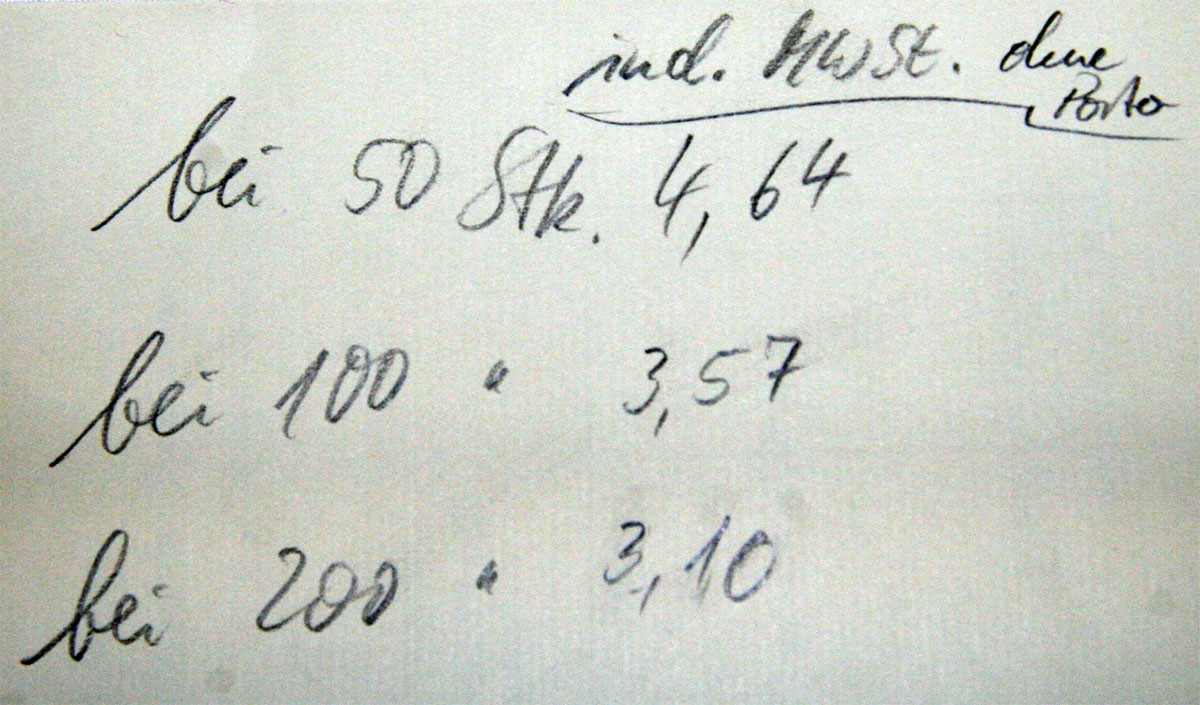 incl. MWSt. ohne
Porto
bei 50 Stk. 4,64
bei 100 " 3,57
bei 200 " 3,10